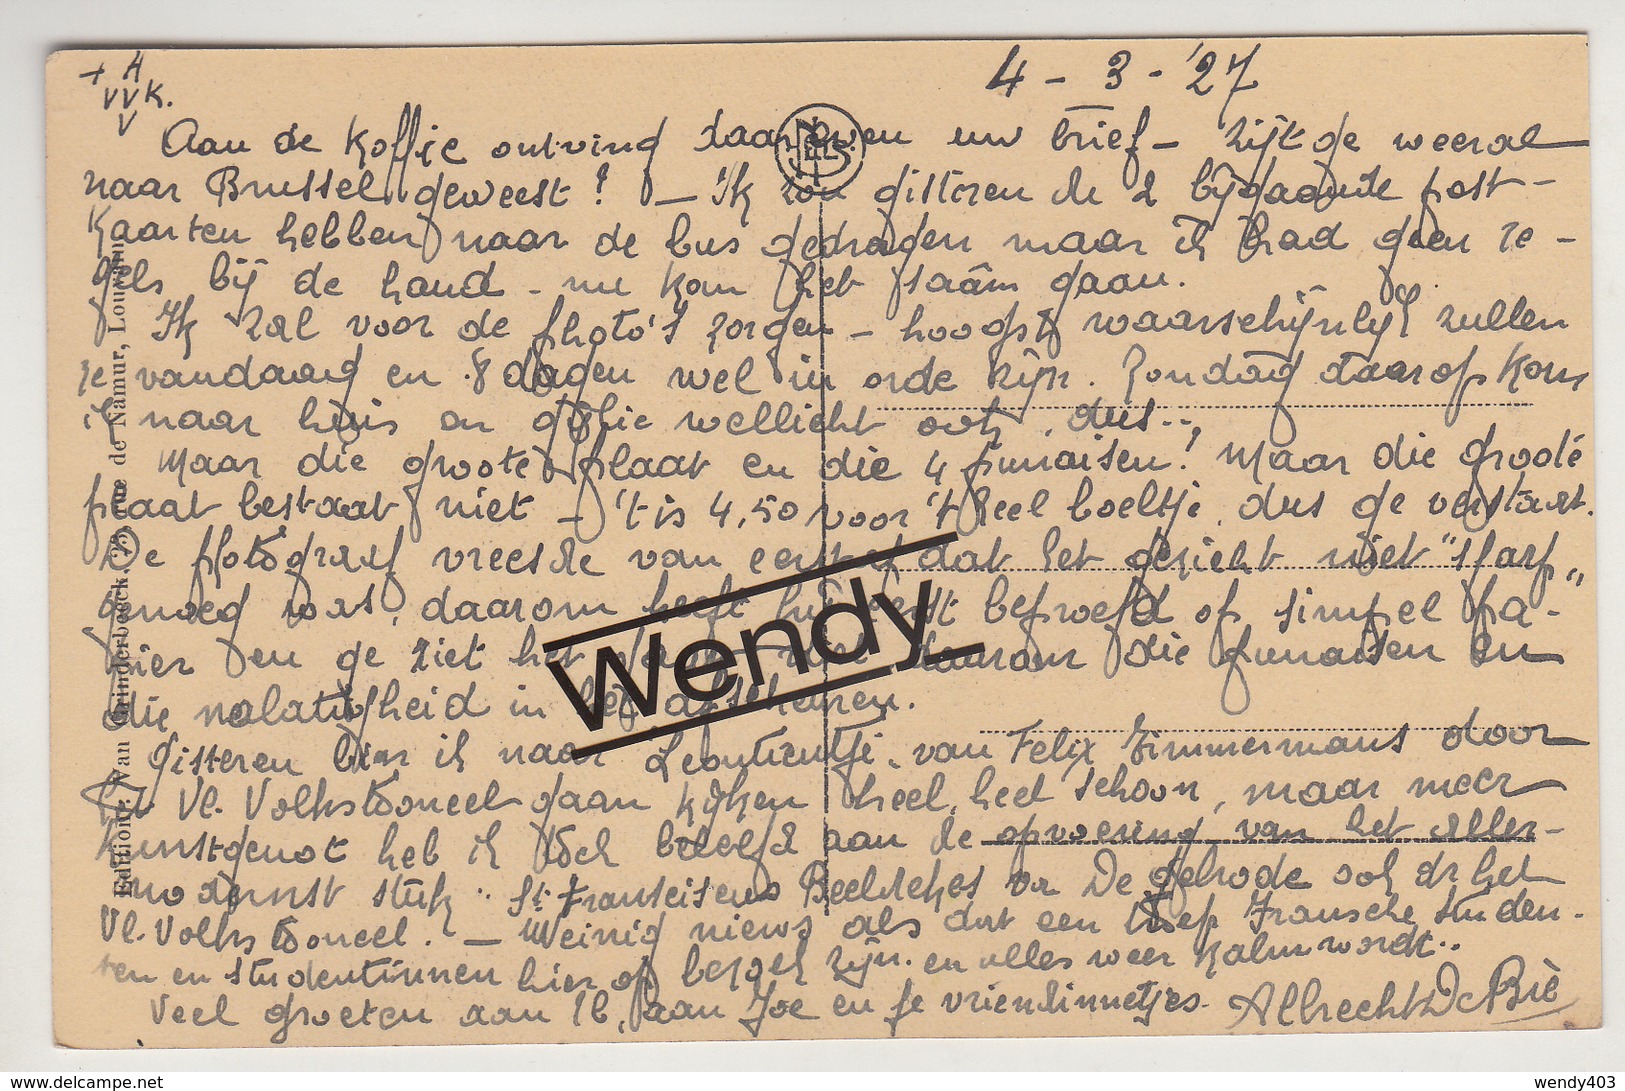 + A
VVK.
V
4 - 3 - '27
NELS
Aan de koffie ontving daareven uw brief - zijt ge weeral
naar Brussel geweest? - Ik zou gisteren de 2 bijgaande post-
kaarten hebben naar de bus gedragen maar ik had geen ze-
gels bij de hand - nu kan het saâm gaan.
Ik zal voor de photo's zorgen - hoogst waarschijnlijk zullen
ze vandaag en 8 dagen wel in orde zijn. Zondag daarop kom
ik naar huis en gijlie wellicht ook, dus..,
Maar die groote plaat en die 4 punaisen! Maar die groote
plaat bestaat niet - 't is 4,50 voor 't heel boeltje, dus ge verstaat.
De fotograaf vreesde van eerst af dat het gezicht niet "scharp"
genoeg was, daarom heeft hij eerst beproefd op simpel pa-
pier en ge ziet het daarom die punaisen en
die nalatigheid in het afscheuren.
Gisteren ben ik naar Leontientje, van Felix Timmermans door
't Vl. Volkstooneel gaan kijken heel, heel schoon, maar meer
kunstgenot heb ik toch beleefd aan de opvoering van het aller-
modernst stuk: St Franciscus Beeldekes van De Gelrode ook dr het
Vl. Volkstooneel. - Weinig niews als dat een troep Fransche studen-
ten en studentinnen hier op bezoek zijn. en alles weer kalm wordt..
Veel groeten aan aan Joe en je vriendinnetjes. Albrecht De Bie
Editions Van Grinderbeeck, rue de Namur, Louvain
Wendy
delcampe.net
wendy403